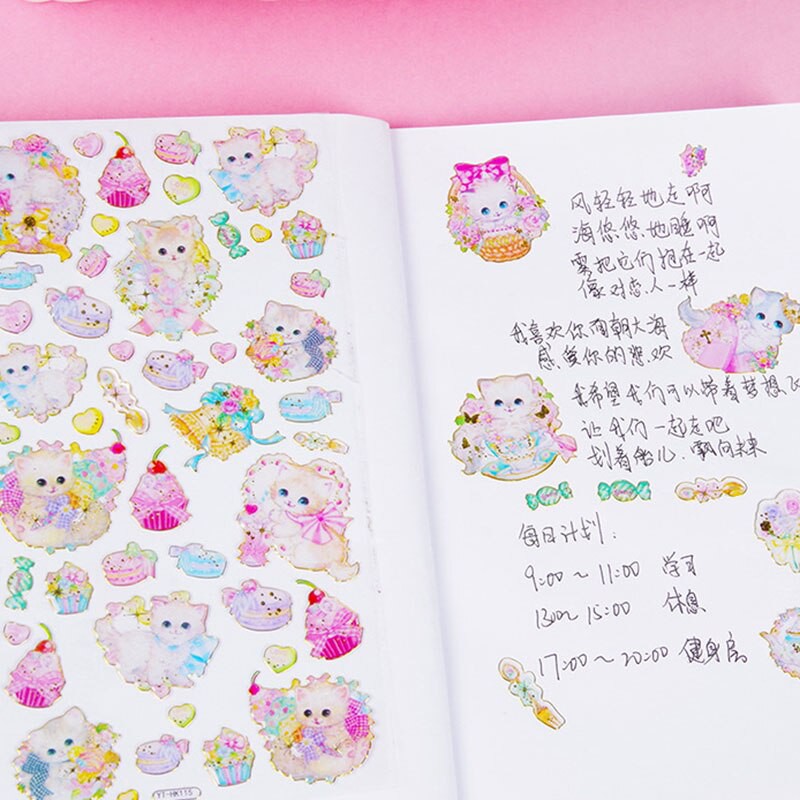 风轻轻地走啊
海悠悠地睡啊
雾把它们抱在一起
像对恋人一样
我喜欢你面朝大海
感受你的悲欢
我希望我们可以带着梦想飞
让我们一起走吧
划着船儿、飘向未来
每日计划:
9:00～11:00 学习
13:00～15:00 休息
17:00～20:00 健身房
YT-HK115